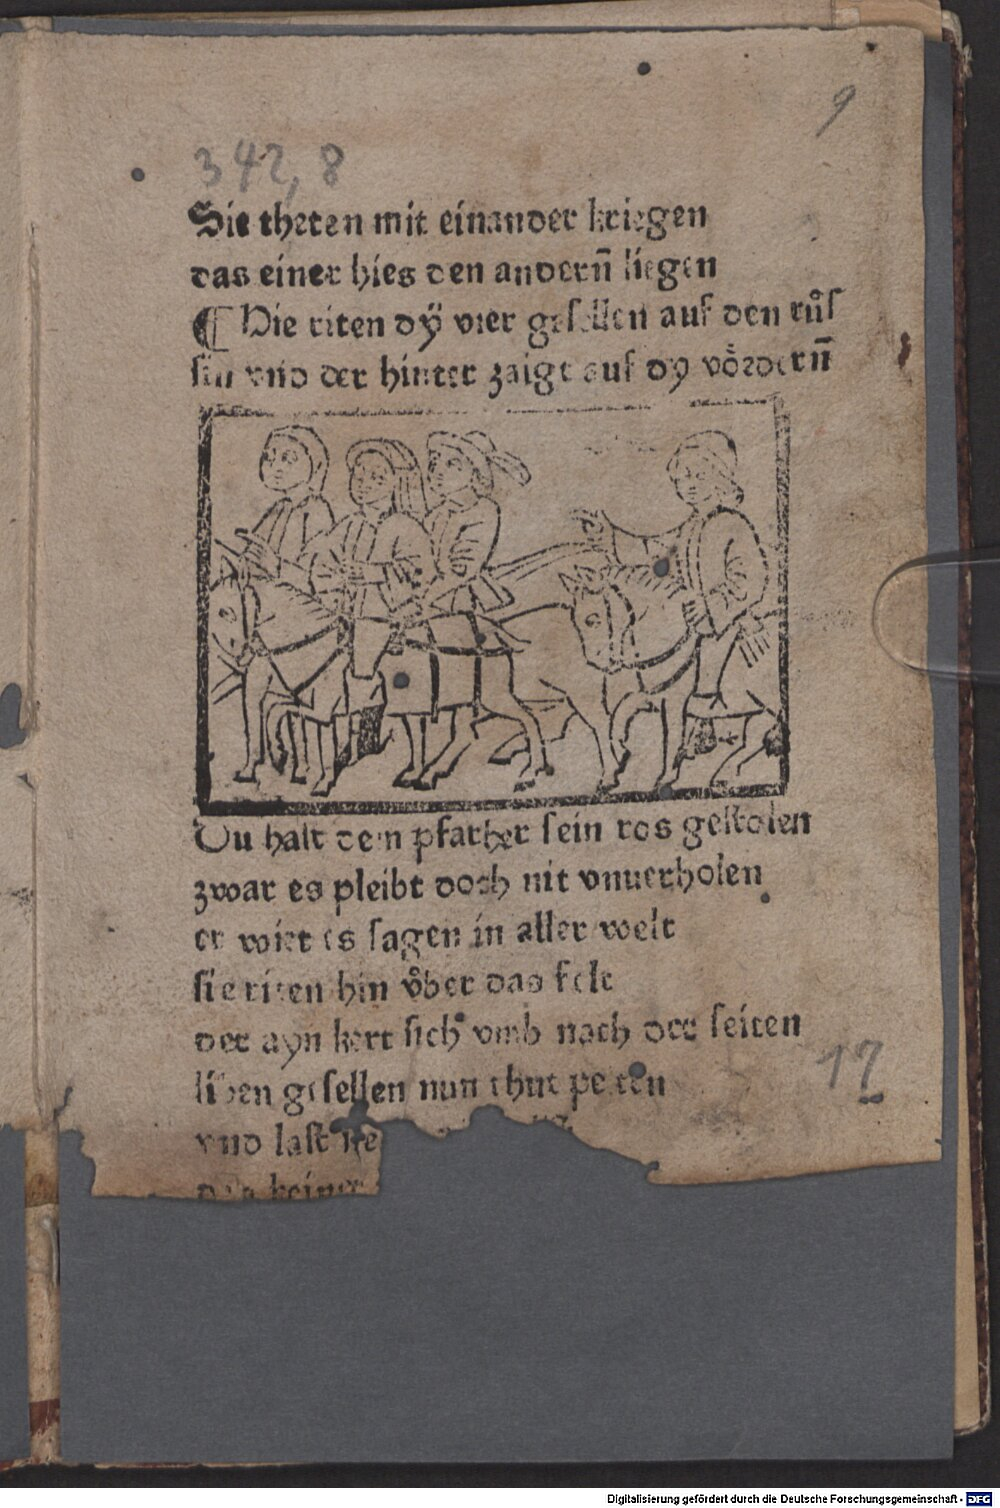 9
342,8
Sie theten mit einander kriegen
das einer hies den andern̄ liegen
¶ Hie riten dÿ vier gesellen auf den růs
sin vnd der hinter zaigt auf dy vȯrdern̄
Du hast dem pfarher sein ros gestolen
zwar es pleibt doch nit vnuerholen
er wirt es sagen in aller welt
sie riten hin v̊ber das felt
der ayn kert sich vmb nach der seiten
liben gesellen nun thut peiten
17
vnd last
keiner
Digitalisierung gefördert durch die Deutsche Forschungsgemeinschaft - DFG